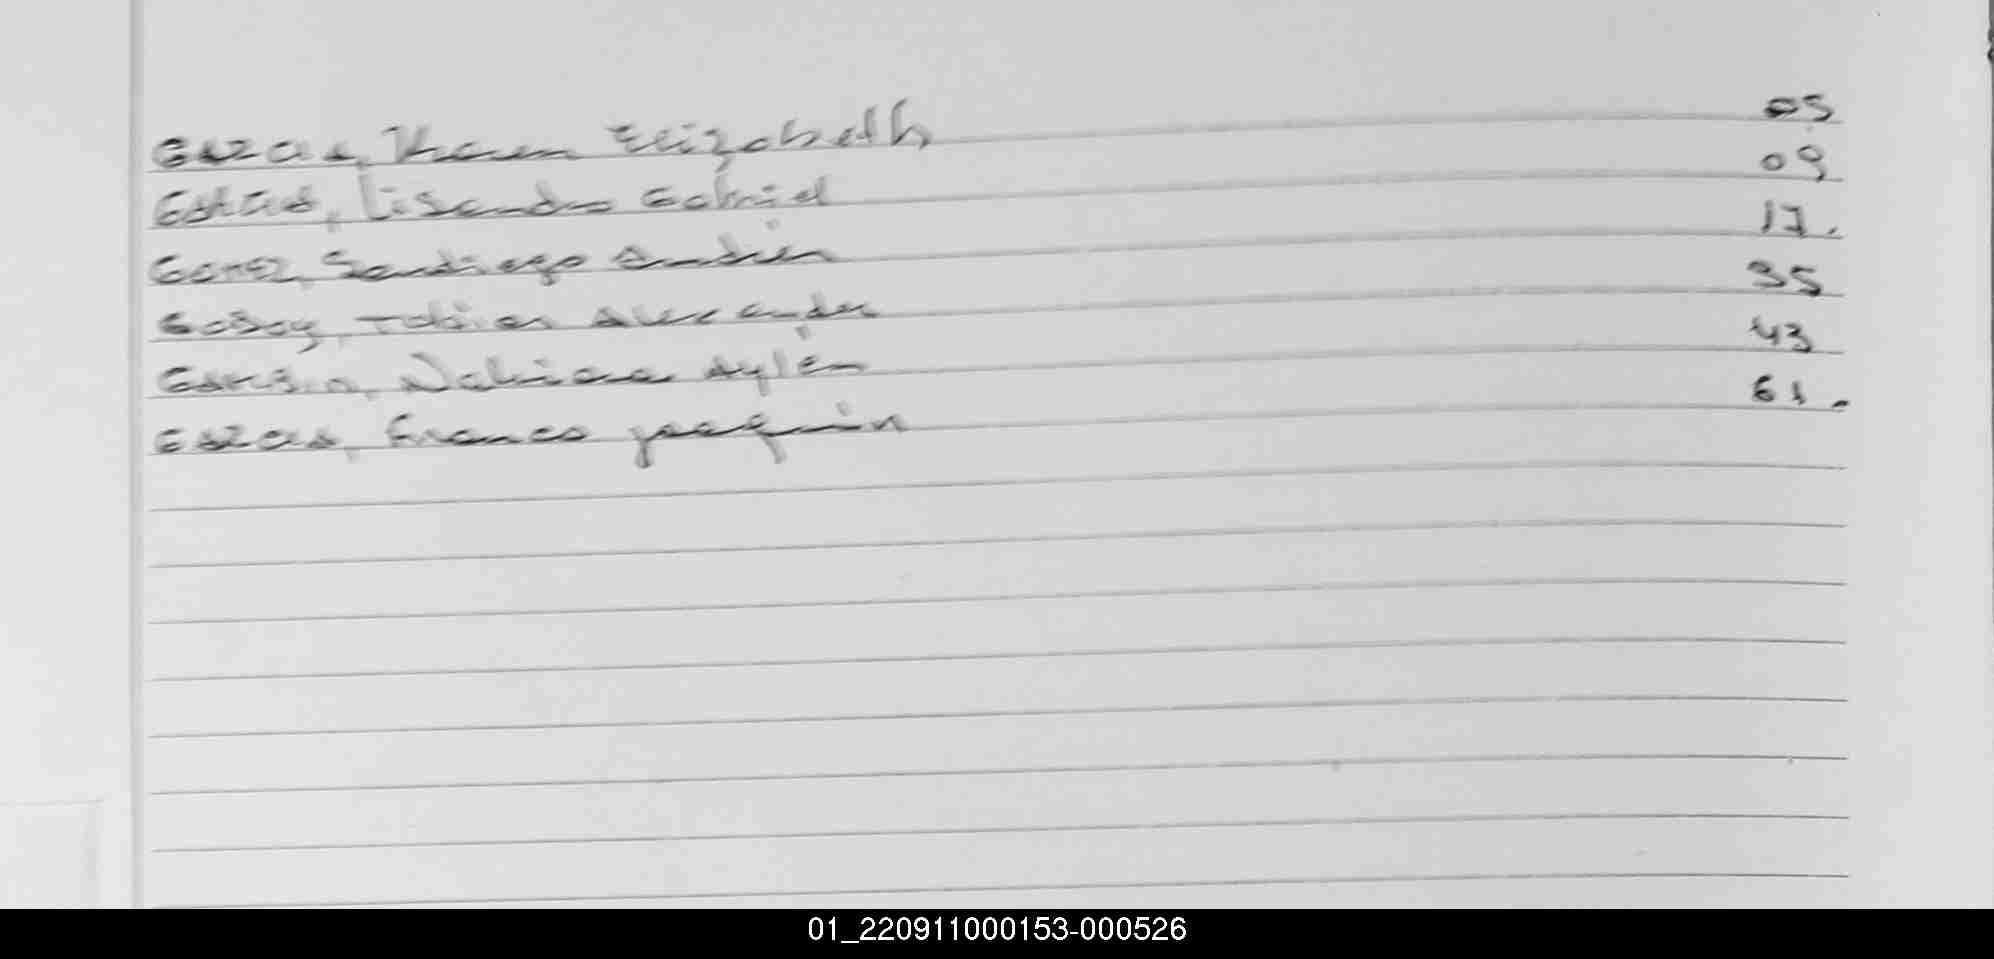 Karen Elizabeth 05
Lisandro Gabriel 09
Gomez, Santiago Andrés 17.
Godoy, Tobias Alexander 35
Garcia, Aylén 43
Franco Joaquin 61.
01_220911000153-000526